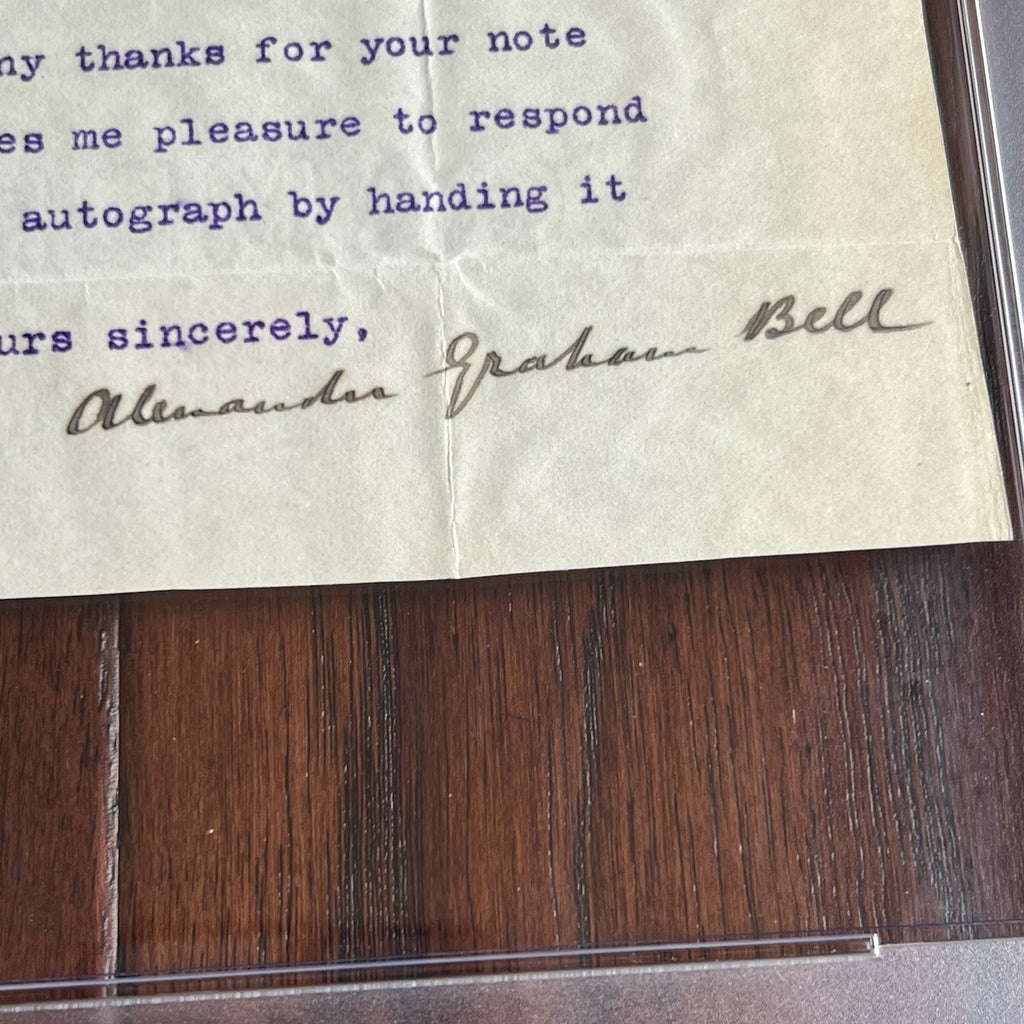 ny thanks for your note
es me pleasure to respond
autograph by handing it
urs sincerely,
Alexander Graham Bell